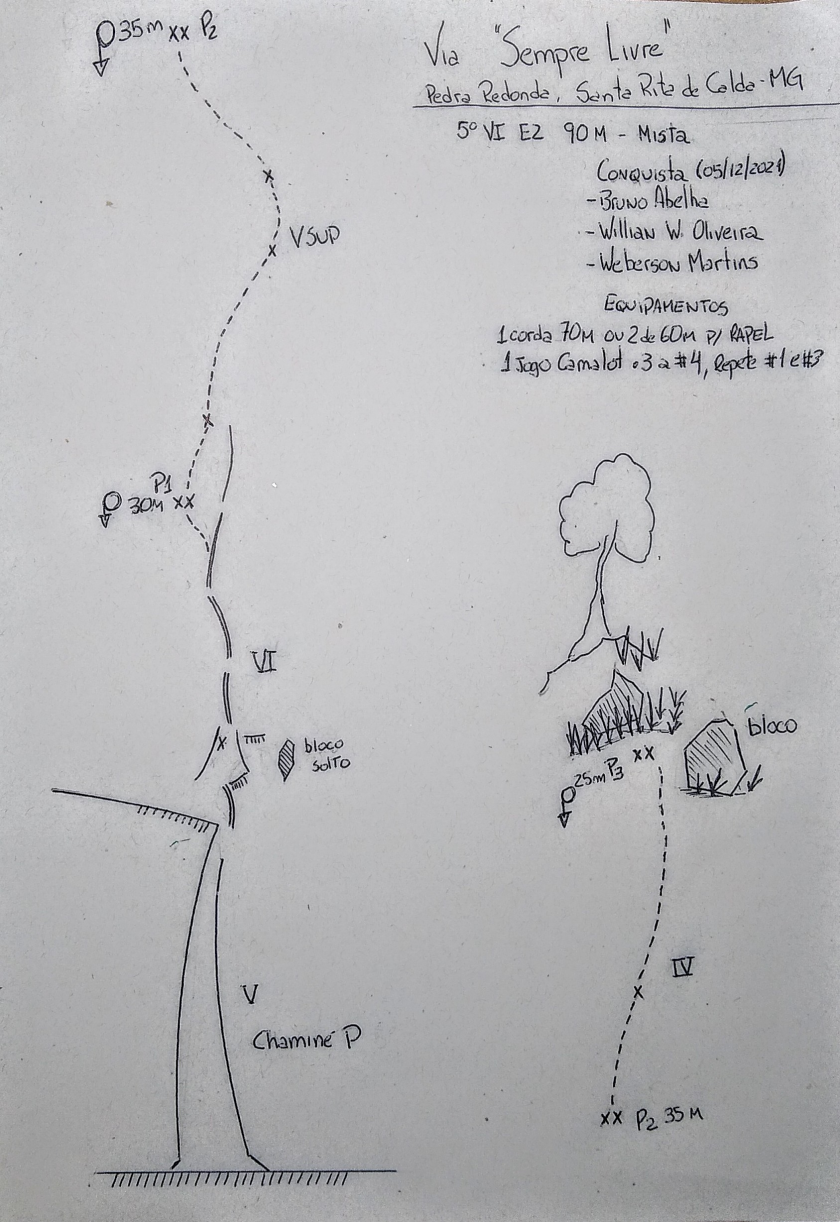 Via "Sempre Livre"
Pedra Redonda, Santa Rita de Calda-MG
5º VI E2 90M - Mista
Conquista (05/12/2021)
- Bruno Abelha
- Willian W. Oliveira
- Weberson Martins
EQUIPAMENTOS
1 corda 70M ou 2 de 60M P/ RAPEL
1 Jogo Camalot .3 a #4, Repete #1 e #3
35m xx P2
x
VSUP
x
x
P1
30M xx
VI
x
bloco
solto
V
Chaminé P
bloco
xx
25m P3
IV
x
xx P2 35 M